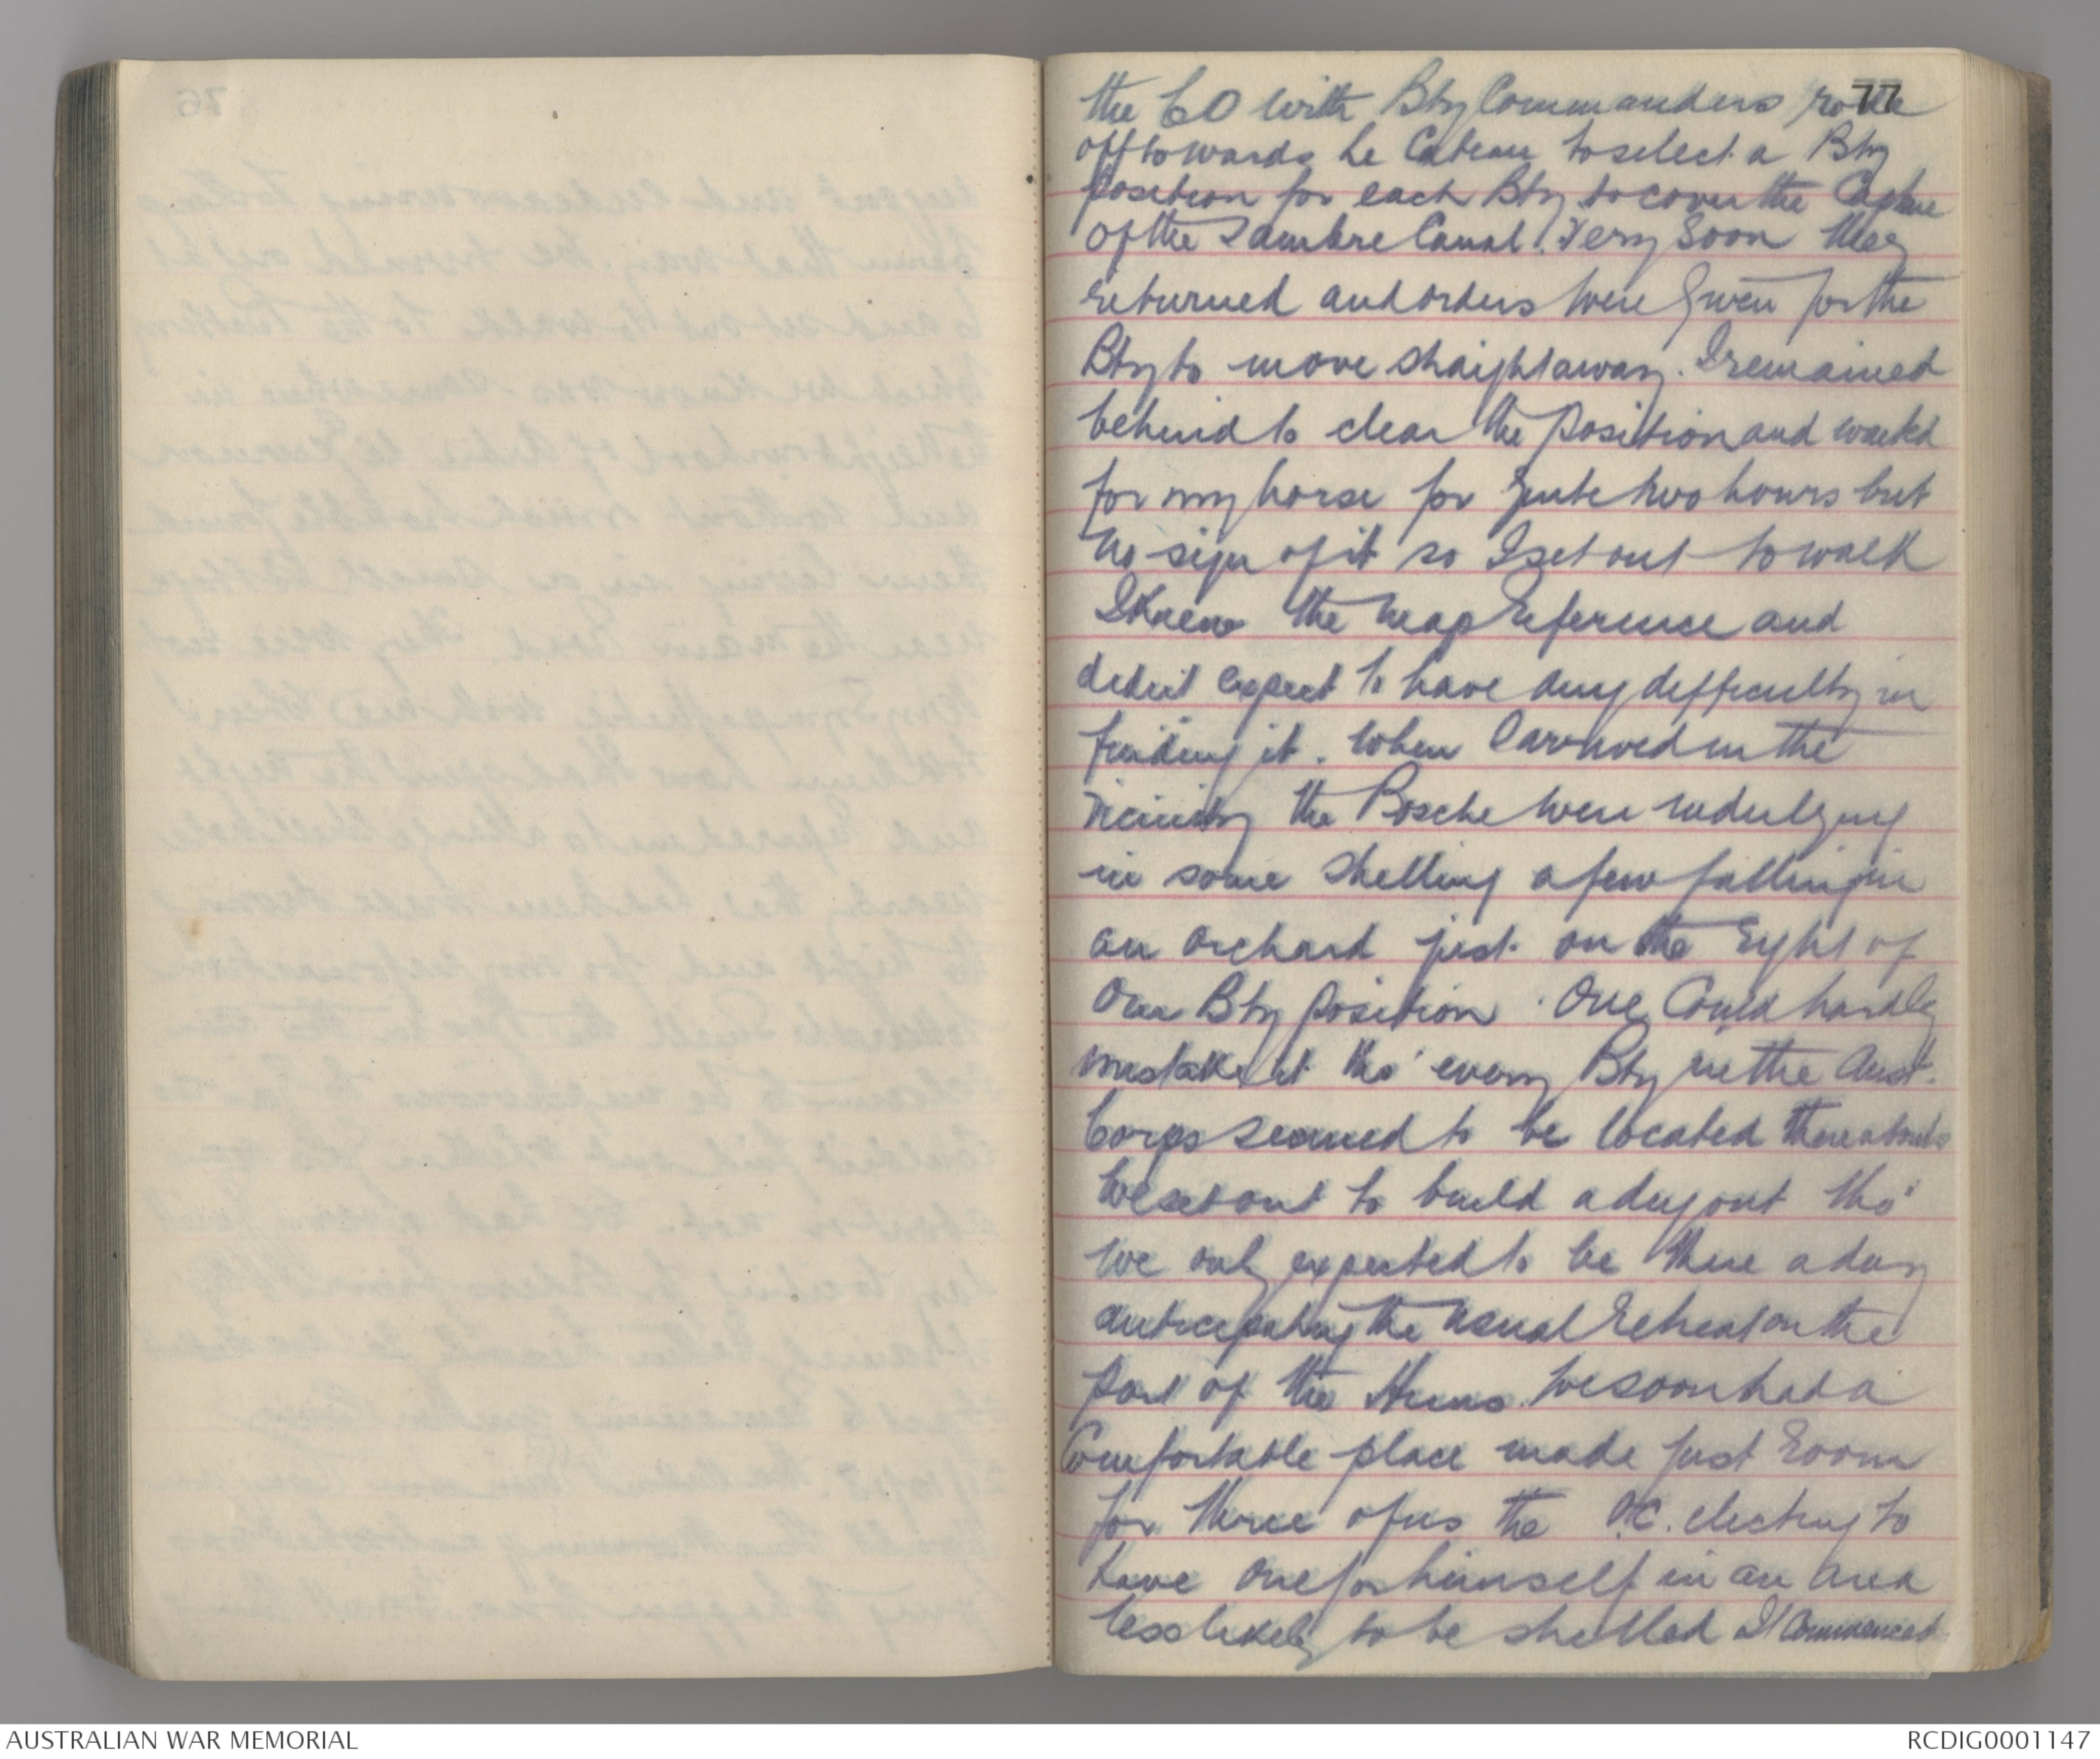 77
the CO with Bty Commanders rode
off towards Le Cateau to select a Bty
position for each Bty to cover the Capture
of the Sambre Canal. Very soon they
returned and orders were given for the
Bty to move straight away. I remained
behind to clear the position and waited
for my horse for quite two hours but
no sign of it so I set out to walk
I knew the map reference and
didn't expect to have any difficulty in
finding it. When I arrived in the
vicinity the Bosche were indulging
in some shelling a few falling in
an orchard just on the right of
our Bty position. One could hardly
mistake it tho' every Bty in the Aust.
Corps seemed to be located thereabouts
We set out to build a dugout tho'
we only expected to be there a day
anticipating the usual retreat on the
part of the Huns. We soon had a
Comfortable place made just room
for three of us the O.C. electing to
have one for himself in an area
less likely to be shelled It commenced
AUSTRALIAN WAR MEMORIAL
RCDIG0001147